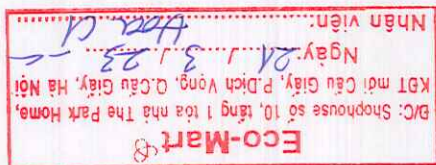 Eco-Mart
Đ/C: Shophouse số 10, tầng 1 tòa nhà The Park Home,
KĐT mới Cầu Giấy, P.Dịch Vọng, Q.Cầu Giấy, Hà Nội
Ngày 21 / 3 / 23
Nhân viên: Hoa